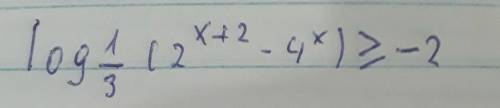 log 1/3 (2^{x+2} - 4^x) ≥ -2